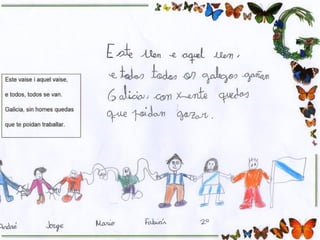 Este ven e aquel ven,
e todos todos os galegos gañan
Galicia, con xente quedas
que poidan gozar.
Este vaise i aquel vaise,
e todos, todos se van.
Galicia, sin homes quedas
que te poidan traballar.
G
André Jorge Mario Fabián 2º